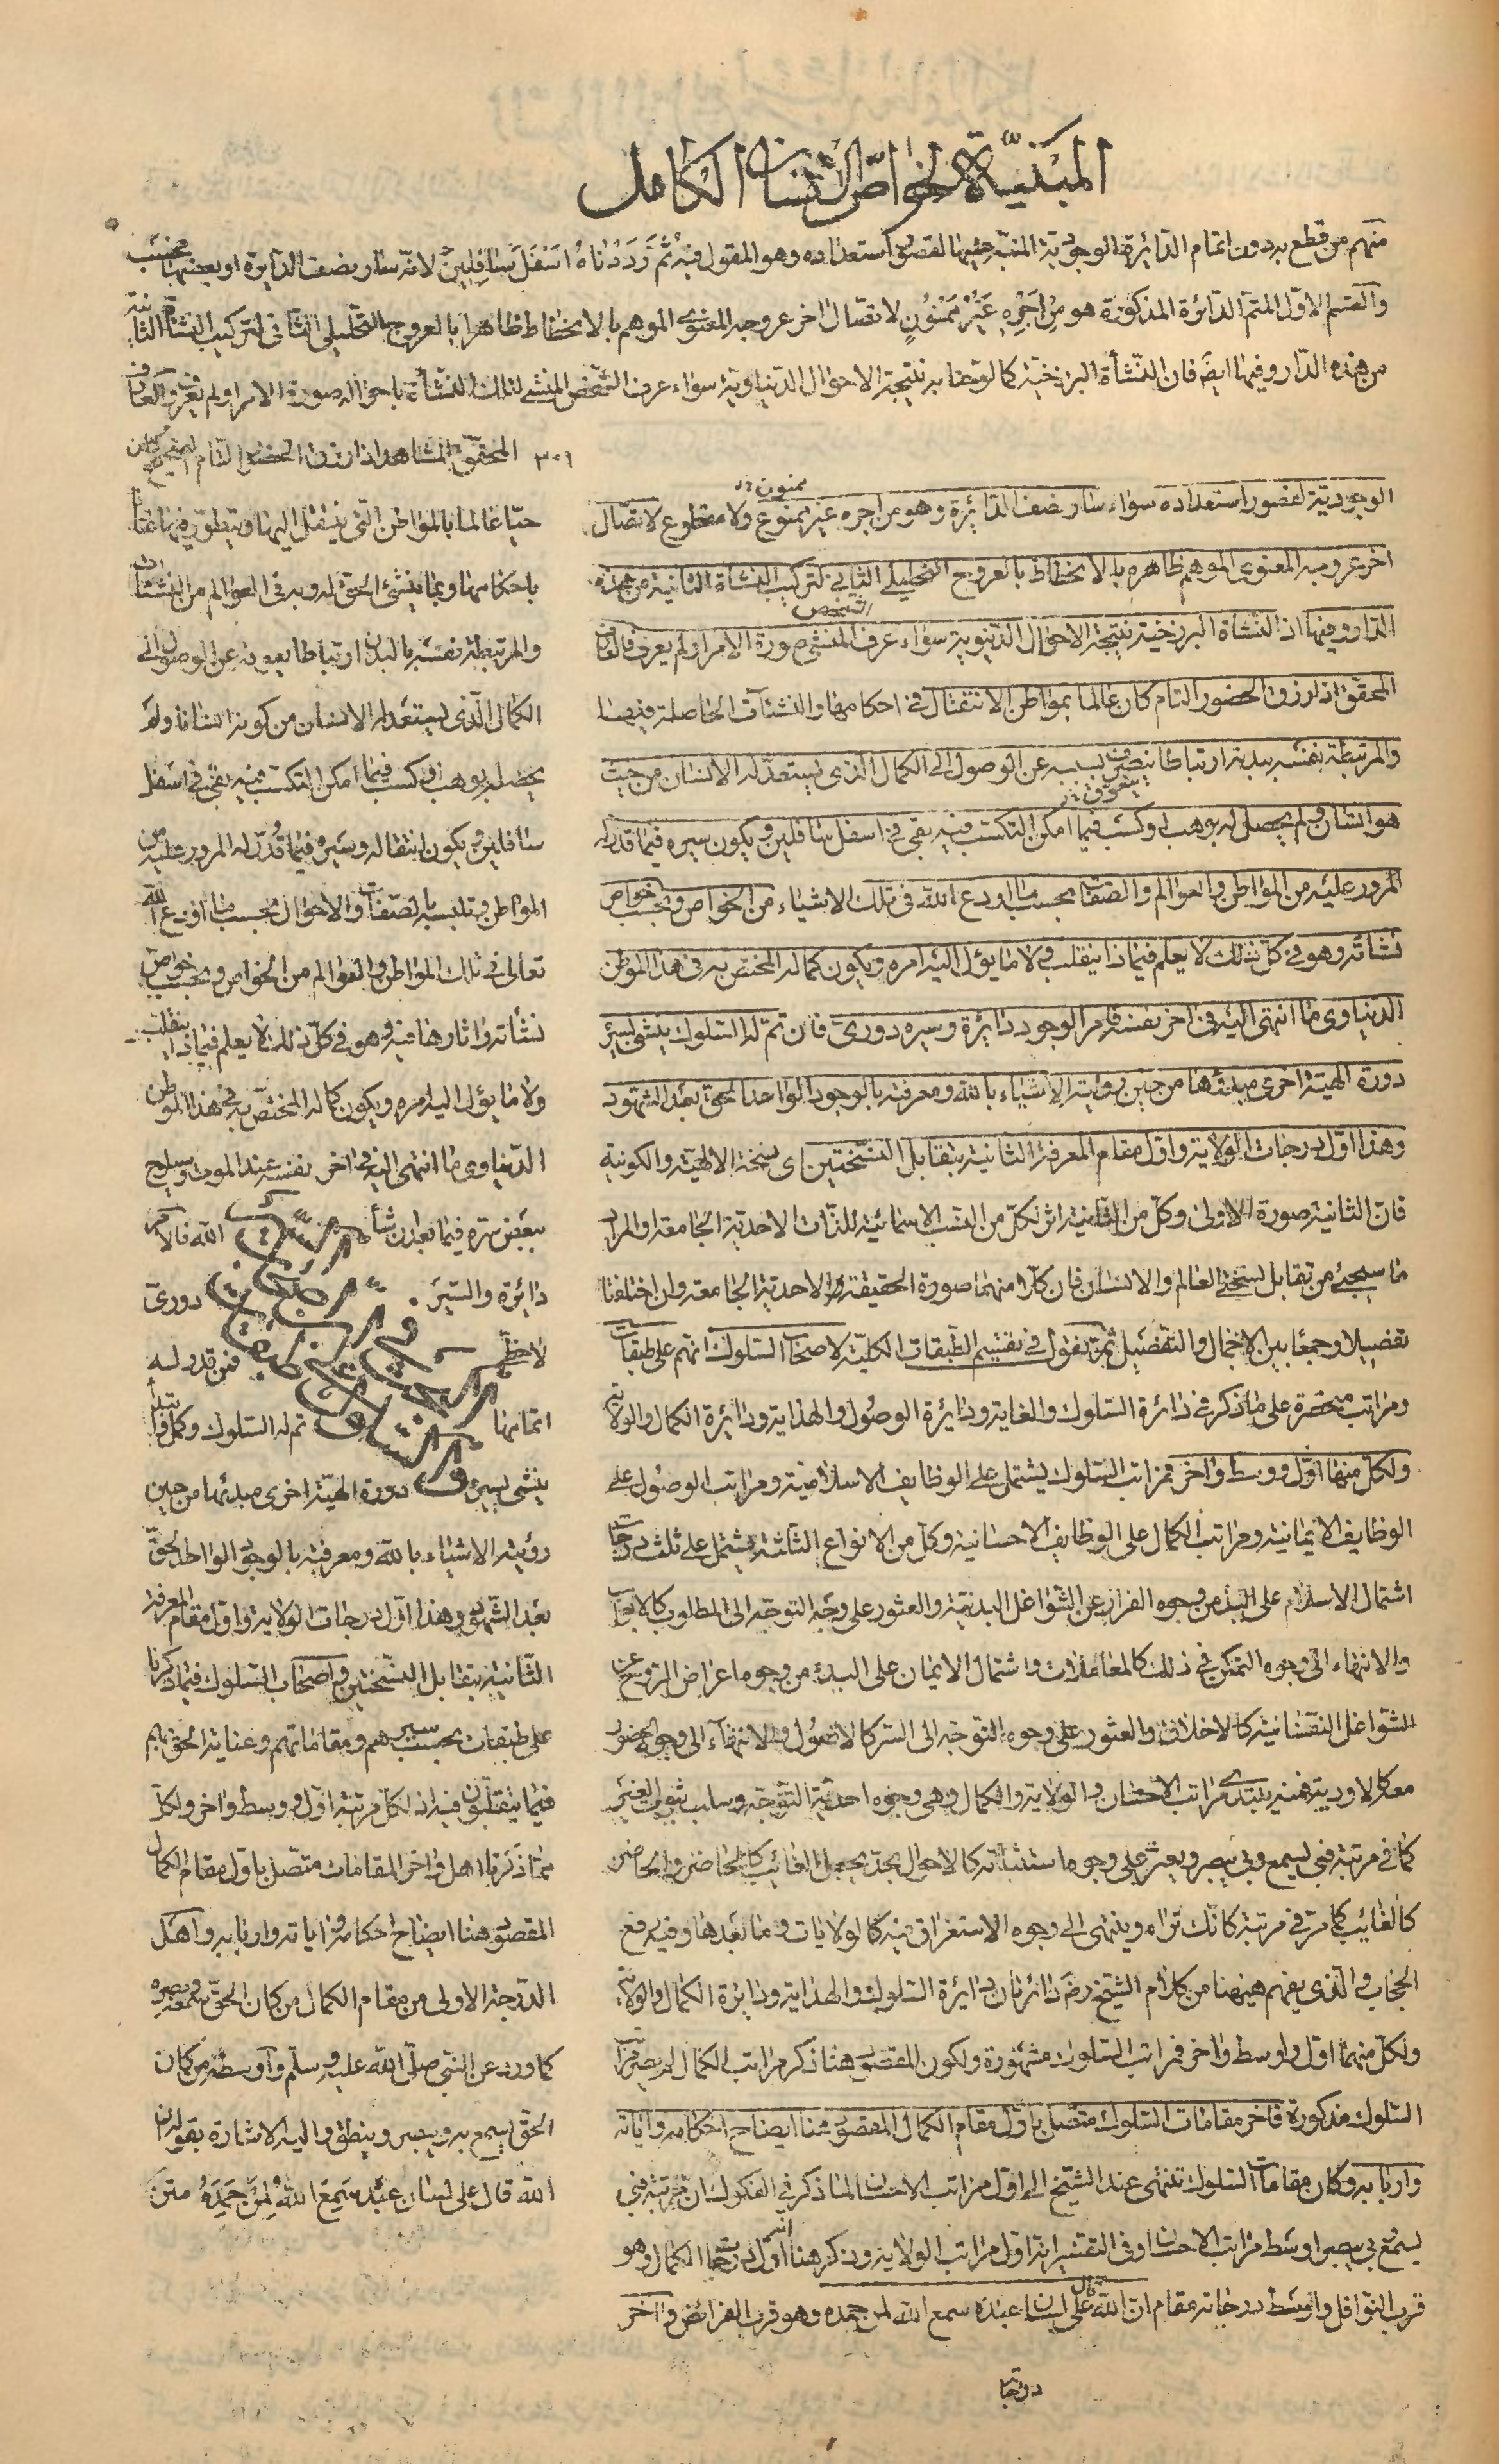 المبنيّة لخواصّ الانسان الكامل
منهم من قطع به دون اتمام الدّائرة الوجوديّة المنبّه عليها لقصور استعداده وهو المقول فيه ثُمَّ رَدَدْنَاهُ اَسْفَلَ سَافِلِينَ لانّه سار نصف الدّايرة او بعضها بحسب
والقسم الاوّل المتمّ الدّائرة المذكورة هو من اَجْرِهِ غَيْرُ مَمْنُونٍ لاتصّال اخر عروجه المعنوى الموهم بالانحطاط ظاهرا بالعروج التحليلى الثّانى لتركيب النشأة الثّانية
من هذه الدّار وفيها ايضً فان النّشأة البرزخيّة كالوضا به نتيجة الاحوال الدّنياويّة سواء عرف الشّخص المنشئ لتلك النّشأة باحواله صورة الامر او لم يعرف والعارف
٣٠١ المحقّق المشاهد اذا رزق الحضور التّام الصّحيح كان
الوجوديّة لقصور استعداده سواء سار نصف الدّائرة وهو من اجره غير ممنوع ولا مقطوع لاتصّال
ممنون
اخر عروجه المعنوى الموهم ظاهره بالانحطاط بالعروج التحليلى الثانى لتركيب النشأة الثانية من هذه
الدّار وفيها اذ النّشأة البرزخية نتيجة الاحوال الدّنيوية سواء عرف المنشى صورة الامر او لم يعرف فالعارف
الشخص
المحقّق اذا رزق الحضور التام كان عالما بمواطن الانتقال فى احكامها والنشئات الحاصلة فيها
والمرتبطة نفسه ببدنه ارتباطا ينصرف بسببه عن الوصول الى الكمال الذى يستعدّ له الانسان من حيث
يتعوق
هو انسان ولم يحصل له بوهب او كسب فيما امكن التكسّب فيه بقى فى اسفل سافلين ويكون سيره فيما قدر له
المرور عليه من المواطن والعوالم والصفات بحسب ما اودع الله فى تلك الاشياء من الخواص وبحسب خواص
نشأته وهو فى كل ذلك لا يعلم فيماذا ينقلب ولا ما يؤل اليه امره ويكون كماله المختص به فى هذا الموطن
الدنياوى ما انتهى اليه فى اخر نفسه فامر الوجود دائرة وسيره دورىّ فان تمّ له السّلوك ينشى بسير
دورة الهيّة اخرى مبدئها من حين رؤية الاشياء بالله ومعرفته بالوجود الواحد الحق بعد الشهود
وهذا اوّل درجات الولاية واول مقام المعرفة الثانية بتقابل النسختين اى نسخة الالهيّة والكونية
فانّ الثانية صورة الاولى وكلّ من الثانية اثر لكلّ من النسب الاسمائيّة للذّات الاحديّة الجامعة والمراد
ما سيجئ من تقابل نسختى العالم والانسان فان كلّا منهما صورة الحقيقة الاحديّة الجامعة وان اختلفتا
تفصيلا وجمعًا بين الاجمال والتفصيل ثمّ نقول فى تقسيم الطّبقات الكليّة لاصحاب السّلوك انهم على طبقات
ومراتب منحصرة على ما ذكر فى دائرة السّلوك والغاية ودائرة الوصول والهداية ودائرة الكمال والولاية
ولكلّ منها اوّل ووسط واخر فمراتب السّلوك يشتمل على الوظايف الاسلاميّة ومراتب الوصول على
الوظايف الايمانية ومراتب الكمال على الوظايف الاحسانية وكلّ من الانواع الثّلثة يشتمل على ثلث درجات
اشتمال الاسلام على البدء من وجوه الفرار عن الشّواغل البدنيّة والعثور على وجه التوجّه الى المطلوب كالابواب
والانتهاء الى وجوه التمكّن فى ذلك كالمعاملات واشتمال الايمان على البدء من وجوه اعراض الرّوح عن
الشّواغل النّفسانية كالاخلاق والعثور على وجوه التوجّه الى السّر كالاصول والانتهاء الى وجوه الحضور
معه كالاودية فمنه يبتدى مراتب الاحسان والولاية والكمال وهى وجوه احديّة التّوجّه وسلب ثبوت الغير
كما فى مرتبة فبى يسمع وبى يبصر ويعثر على وجوه استثباته كالاحوال بحدّ يجعل الغائب كالحاضر والحاضر
كالغائب كما مرّ فى مرتبة كانّك تراه وينتهى الى وجوه الاستغراق فيه كالولايات وما بعدها وفيه رفع
الحجاب والّذى يفهم هيهنا من كلام الشّيخ رض دائرتان دائرة السّلوك والهداية ودائرة الكمال والولاية
ولكلّ منهما اوّل واوسط واخر فمراتب السّلوك مشهورة ولكون المقصود هنا ذكر مراتب الكمال لم يصر مراتب
السّلوك مذكورة فاخر مقامات السّلوك متّصل باوّل مقام الكمال المقصود هنا ايضاح احكامه واياته
واربابه وكان مقامات السّلوك تنتهى عند الشّيخ الى اول مراتب الاحسان لما ذكر فى الفكوك ان مرتبة فبى
يسمع بى يبصر اوسط مراتب الاحسان وفى التفسير انه اول مراتب الولاية وذكر هنا انّه اوّل درجات الكمال وهو
قرب النوافل واوسط درجاته مقام انّ الله قال على لسان عبده سمع الله لمن حمده وهو قرب الفرائض واخر
درجا
حيّا عالما بالمواطن التى ينتقل اليها ويتطوّر فيها عارفا
باحكامها وبما ينشئ الحق له وبه فى العوالم من النشئات
والمرتبطة نفسه بالبدن ارتباطا يعوقه عن الوصول الى
الكمال الّذى يستعدّ له الانسان من كونه انسانا ولم
يحصل له بوهب او كسب فيما امكن التكسّب فيه بقى فى اسفل
سافلين ويكون انتقاله وسيره فيما قُدّر له المرور عليه من
المواطن وتلبسه بالصّفات والاحوال بحسب ما اودع الله
تعالى فى تلك المواطن والعوالم من الخواص وبحسب خواص
نشأته واثارها فيه وهو فى كلّ ذلك لا يعلم فيماذا ينقلب
ولا ما يؤل اليه امره ويكون كماله المختصّ به فى هذا الموطن
الدّنياوى ما انتهى اليه فى اخر نفسه عند الموت وسيلوح
ببعض سرّه فيما بعد ان شاء الله فالامر
دائرة والسّير دورىّ
لاخطّى فمن قدر له
اتمامها تم له السّلوك وكمل فابتدأ
ينشى بسير دورة الهيّة اخرى مبدئها من حين
رؤية الاشياء بالله ومعرفته بالوجود الواحد الحقّ
بعد الشّهود وهذا اوّل درجات الولاية واوّل مقام المعرفة
الثّانية بتقابل النسختين واصحاب السّلوك فيما ذكرنا
على طبقات بحسب سيرهم ومقاماتهم وعناية الحق بهم
فيما ينقلبون فيه اذ لكلّ مرتبة اوّل ووسط واخر ولكلّ
ممّا ذكرنا اهل واخر المقامات متّصل باوّل مقام الكمال
المقصود هنا ايضاح احكامه واياته واربابه واهل
الدّرجة الاولى من مقام الكمال من كان الحقّ سمعه وبصره
كما ورد عن النّبى صلّى الله عليه وسلّم واوسطه من كان
الحق يسمع به ويبصر وينطق واليه الاشارة بقوله ان
الله قال على لسان عبده سَمِعَ اللهُ لِمَنْ حَمِدَهُ